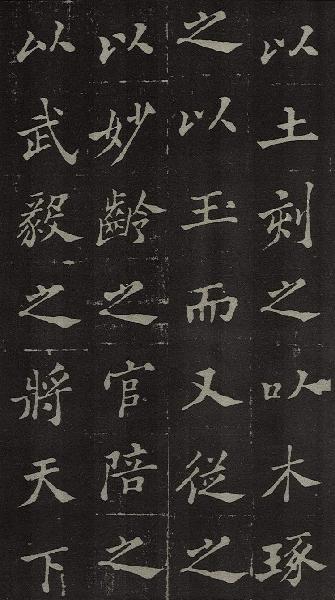 以土刻之以木琢
之以玉而又從之
以妙齡之官陪之
以武毅之將天下